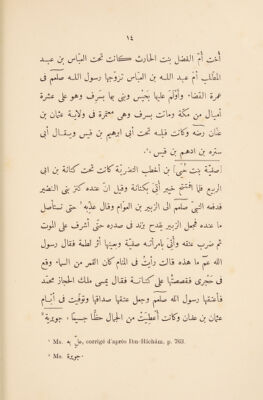 ١٤
أخت أمّ الفضل بنت الحارث كانت تحت العبّاس بن عبد
المطّلب أمّ عبد الله بن العبّاس تزوّجها رسول الله صلّعم فى
عمرة القضاء وأولم عليها بحَيْس وبنى بها بسَرِف وهو على عشرة
أميال من مكّة وماتت بسرف وهى معتمرة فى ولاية عثمان بن
عفّان رضّه وكانت قبله تحت أبى ابرهيم بن قيس ويقال أبى
ستره بن ادهم بن قيس
صفيّة بنت حُيَىّ بن أخطب النضريّة كانت تحت كنانة بن ابى
الربيع فلمّا افتتح خيبر أُتى بكنانة وقيل انّ عنده كنز بنى النضير
فدفعه النبىّ صلّعم الى الزبير بن العوّام وقال عذّبه ¹ حتى تستأصل
ما عنده فجعل الزبير يقدح بزند فى صدره حتى أشرف على الموت
ثم ضرب عنقه وأُتى بامرأته صفيّة وبعينها أثر لطمة فقال رسول
الله عمّ ما هذه قالت رأيتُ فى المنام كان القمر من السماء وقع
فى حَجْرى فقصصتُها على كنانة فقال يمسى ملك الحجاز محمّد
فأعتقها رسول الله صلّعم وجعل عتقها صداقها وتوفّيت فى أيّام
عثمان بن عفّان وكانت أُعطِيَتْ من الجمال حظّا جسيما، جويرية ²
¹ Ms. عل به, corrigé d'après Ibn-Hichâm, p. 763.
² Ms. جويرة.